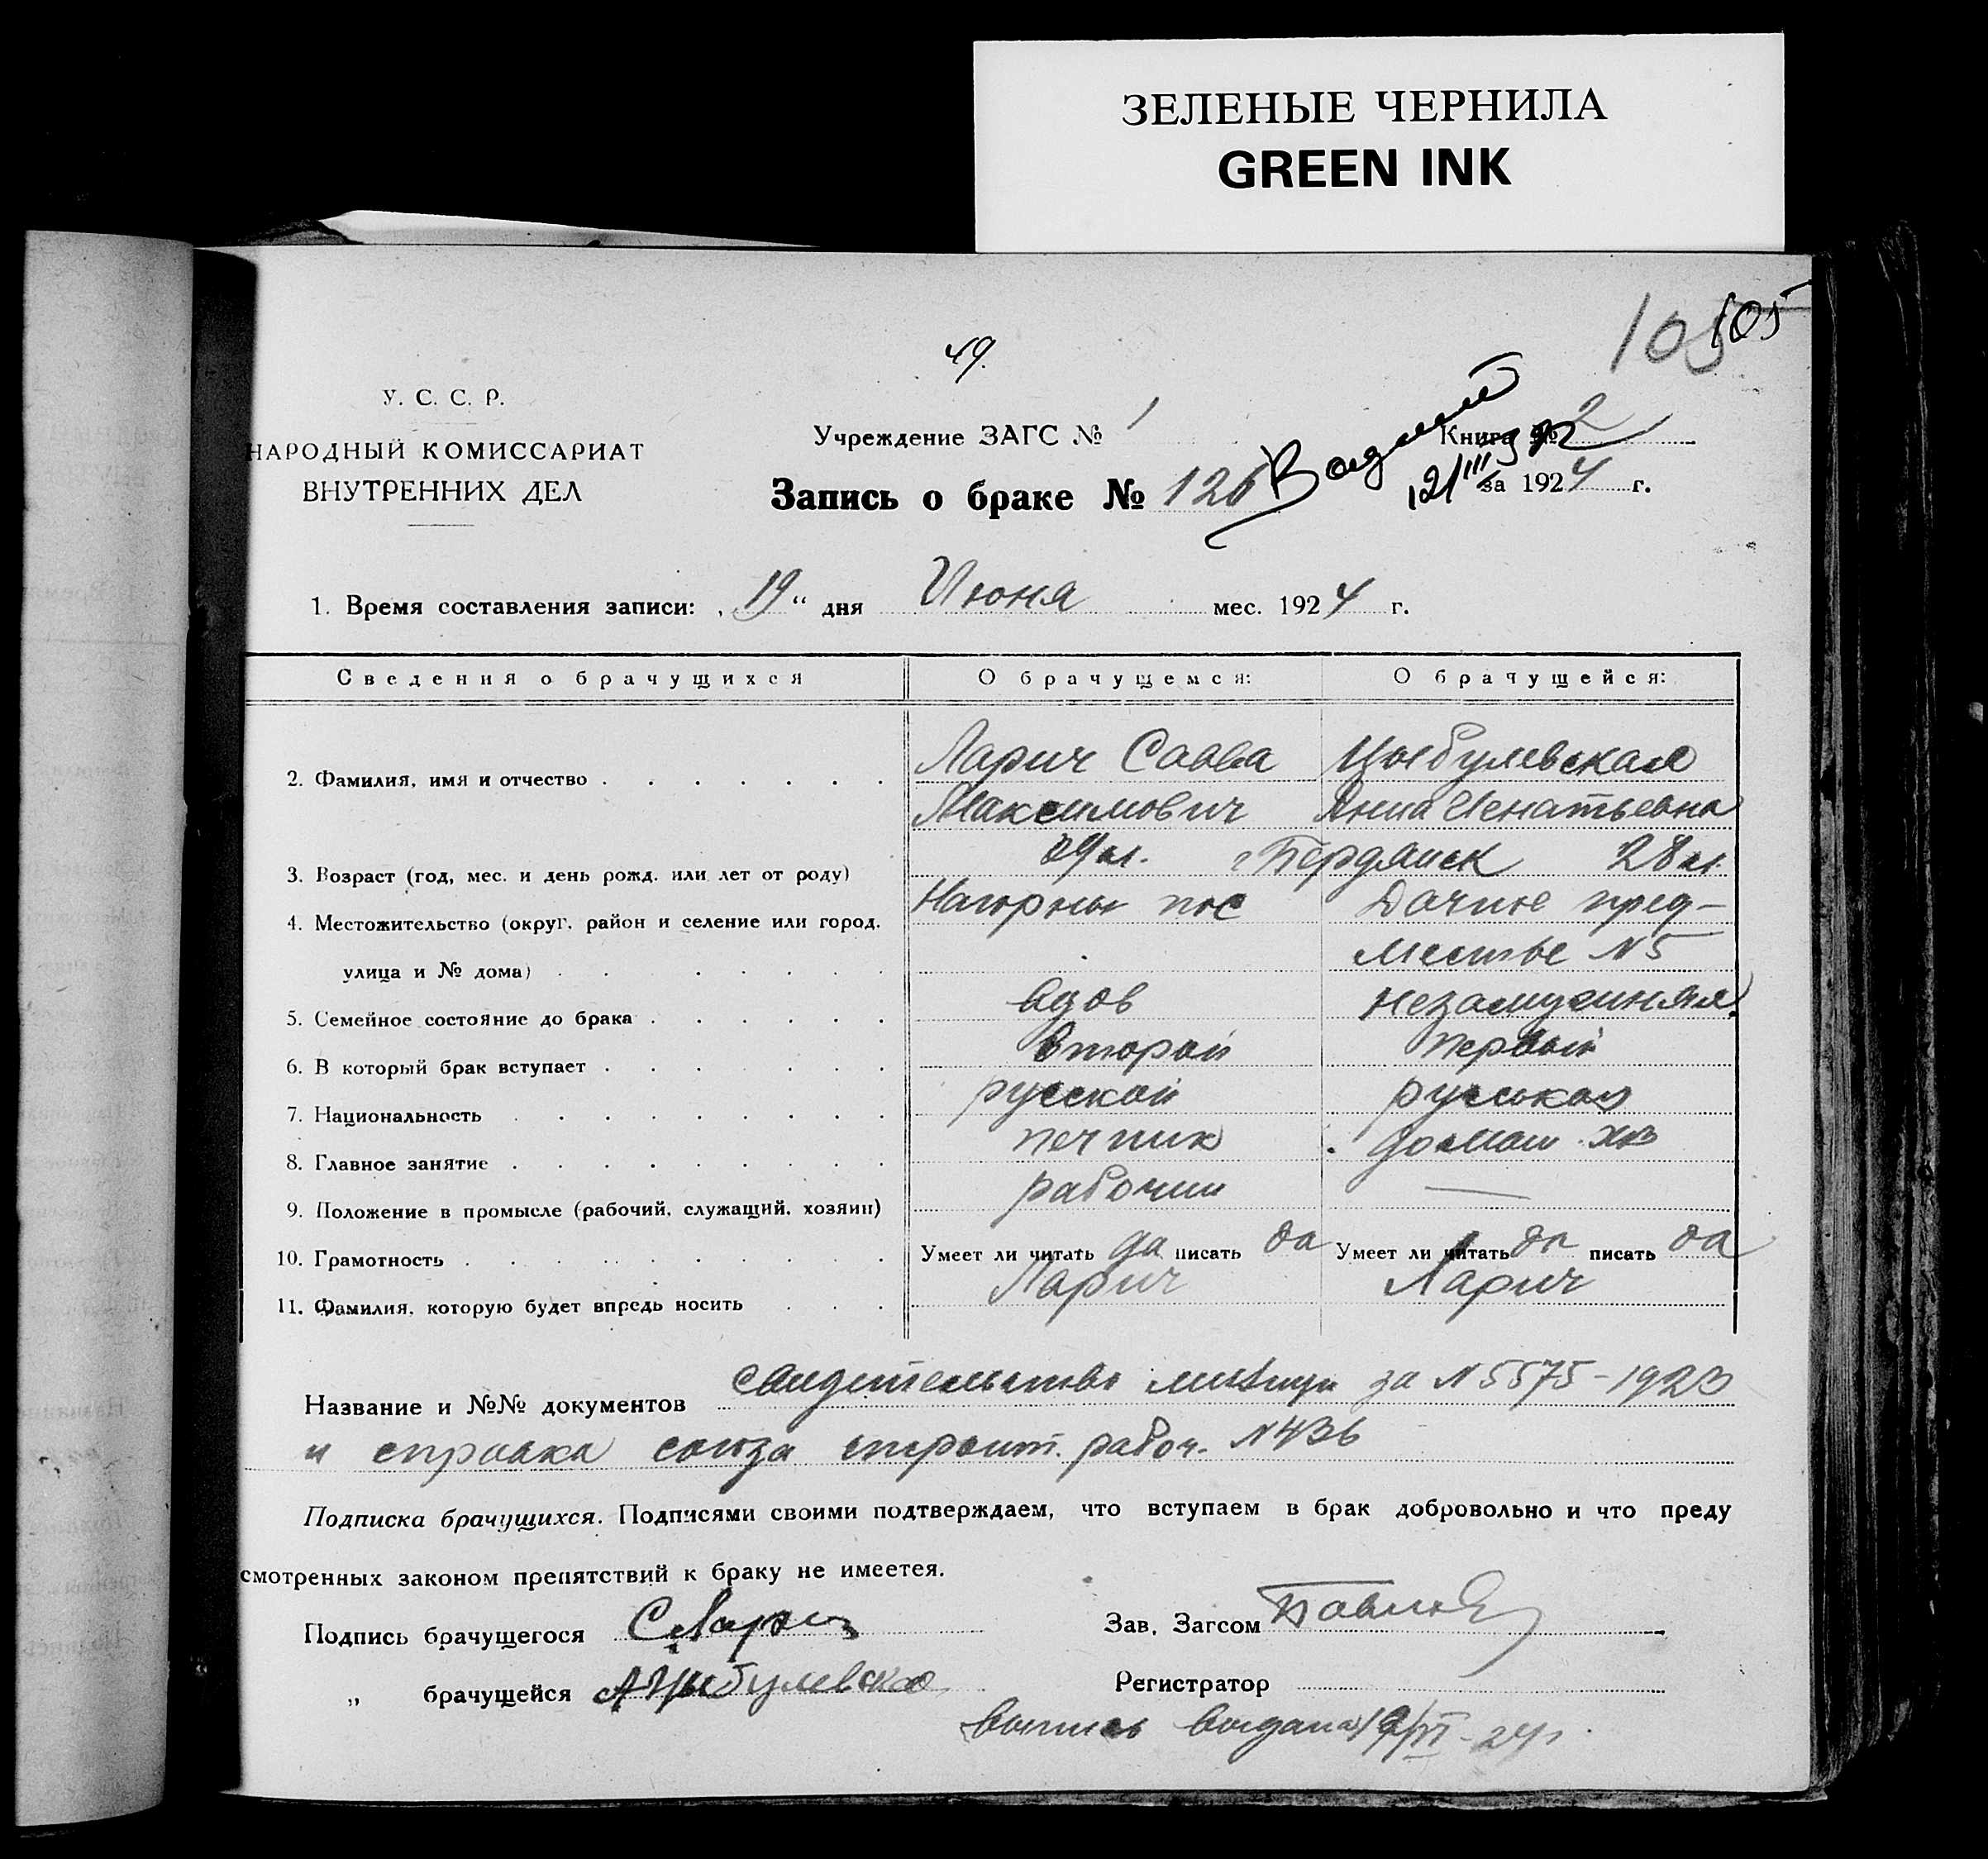 ЗЕЛЕНЫЕ ЧЕРНИЛА
GREEN INK
105 105
49.
У. С. С. Р.
НАРОДНЫЙ КОМИССАРИАТ
ВНУТРЕННИХ ДЕЛ
Учреждение ЗАГС № 1
Книга № 2
Запись о браке № 126
за 1924 г.
1. Время составления записи: „19“ дня Июня мес. 1924 г.
Сведения о брачущихся О брачущемся: О брачущейся:
2. Фамилия, имя и отчество Ларич Савва Цыбулевская
Максимович Анна Игнатьевна
3. Возраст (год, мес. и день рожд. или лет от роду) 29 л. г Бердянск 28 л.
4. Местожительство (округ, район и селение или город, Нагорный пос Дачное пред-
улица и № дома) местье N 5
5. Семейное состояние до брака вдов незамужняя
6. В который брак вступает второй первый
7. Национальность русской русская
8. Главное занятие печник домаш. хоз
9. Положение в промысле (рабочий, служащий, хозяин) рабочий —
10. Грамотность Умеет ли читать да писать да Умеет ли читать да писать да
11. Фамилия, которую будет впредь носить Ларич Ларич
Название и №№ документов свидетельство за N 5575-1923
и справка союза строит. рабоч. N 436
Подписка брачущихся. Подписями своими подтверждаем, что вступаем в брак добровольно и что преду
смотренных законом препятствий к браку не имеется.
Подпись брачущегося С Ларич Зав. Загсом
„ брачущейся А Цыбулевская Регистратор
выпись выдана 19/VI-24 г.